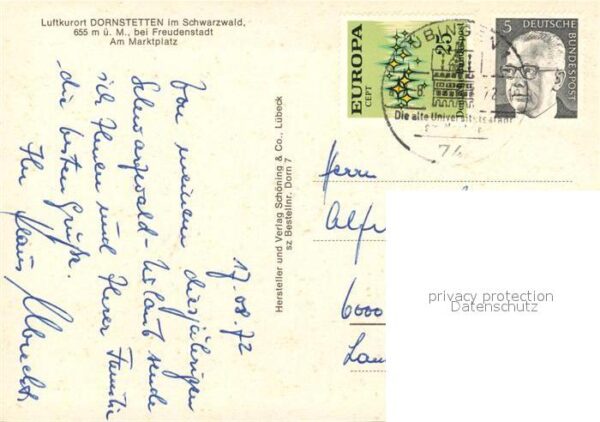 Luftkurort DORNSTETTEN im Schwarzwald,
655 m ü. M., bei Freudenstadt
Am Marktplatz
17.08.72
Von meinem diesjährigen
Schwarzwald-Urlaub sende
ich Ihnen und Ihrer Familie
die besten Grüße.
Ihr
Klaus Albrecht
Hersteller und Verlag Schöning & Co., Lübeck
sz Bestellnr. Dorn 7
EUROPA
CEPT
25
Deutsche Bundespost
5 DEUTSCHE
BUNDESPOST
TÜBINGEN
Die alte Universitätsstadt
74
Herrn
Alf
6000
privacy protection
Datenschutz